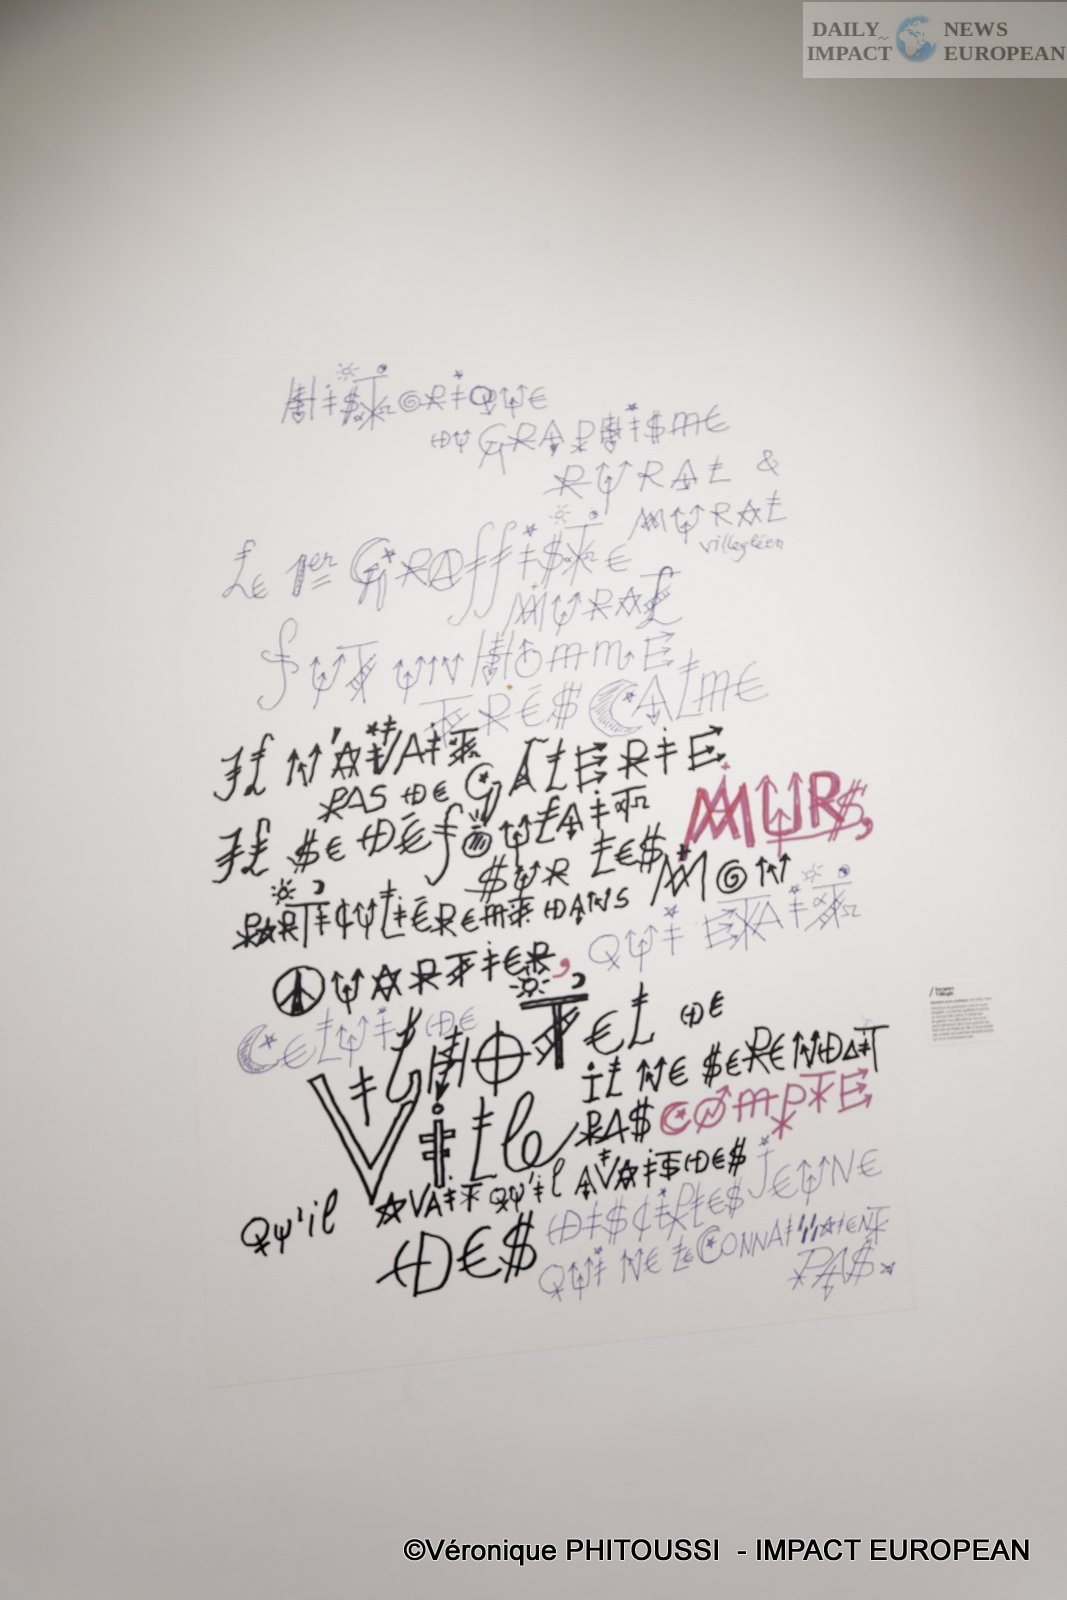 DAILY IMPACT NEWS EUROPEAN
HISTORIQUE
DU GRAPHISME
RURAL &
MURAL
villegléen
LE 1er GRAFFISTE
MURAL
FUT UN HOMME
TRÉS CALME
IL N'AVAIT
PAS DE GALERIE
IL SE DÉFOULAIT
SUR LES MURS,
PARTICULIÉREMT DANS MON
QUARTIER, QUI ÉTAIT
CELUI DE
L'HOTEL DE
VILLE
IL NE SE RENDAIT
PAS COMPTE
QU'il AVAIT QU'il AVAIT DES
DES DISCIPLES JEUNE
QUI NE LE CONNAISSAIENT
PAS.
©Véronique PHITOUSSI - IMPACT EUROPEAN